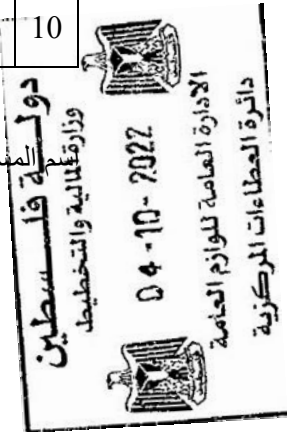 10
دولـــة فلـــسطين
وزارة المالية والتخطيط
04-10-2022
الادارة العامة للوازم العامة
دائرة العطاءات المركزية